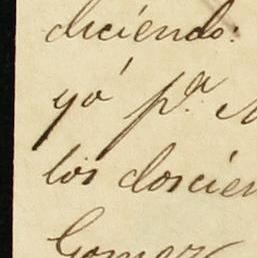 diciendo:
yó p.ª
los doscien
Gomez